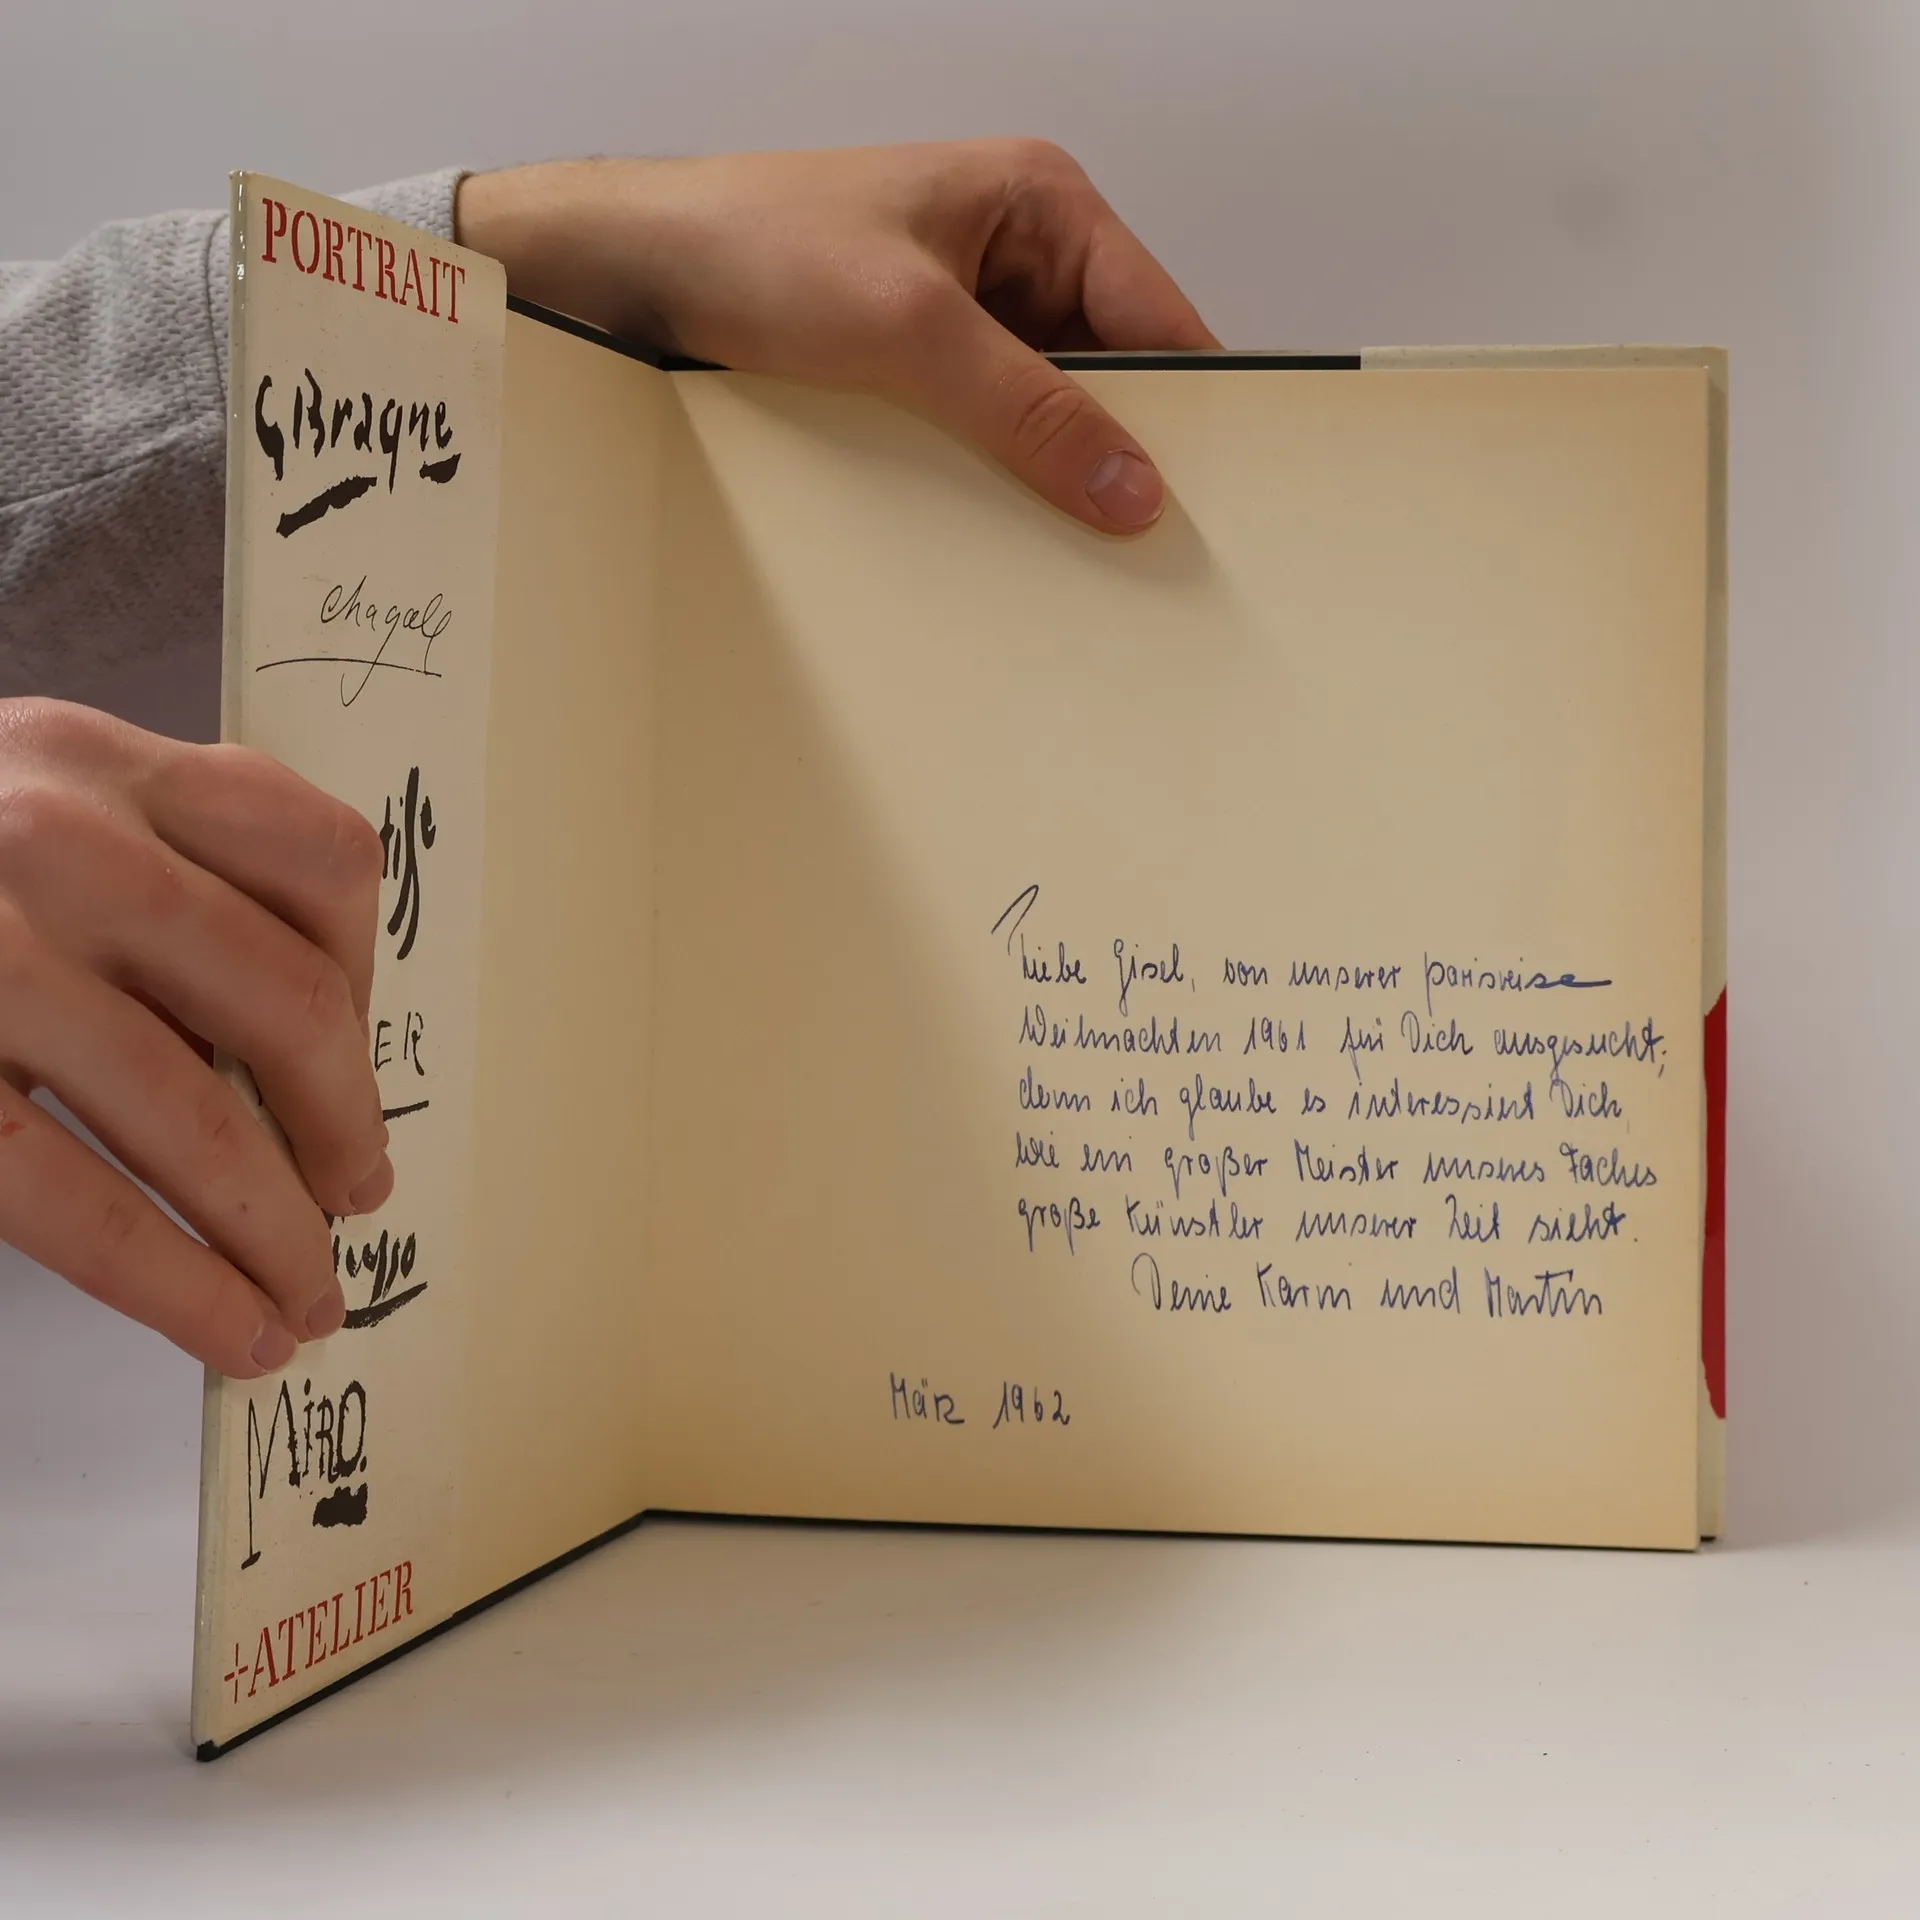 PORTRAIT
G Braque
Chagall
tisse
ER
icasso
MIRÓ.
+ATELIER
Liebe Gisel, von unserer Parisreise
Weihnachten 1961 für Dich ausgesucht;
denn ich glaube es interessiert Dich,
wie ein großer Meister unseres Faches
große Künstler unserer Zeit sieht.
Deine Karin und Martin
März 1962